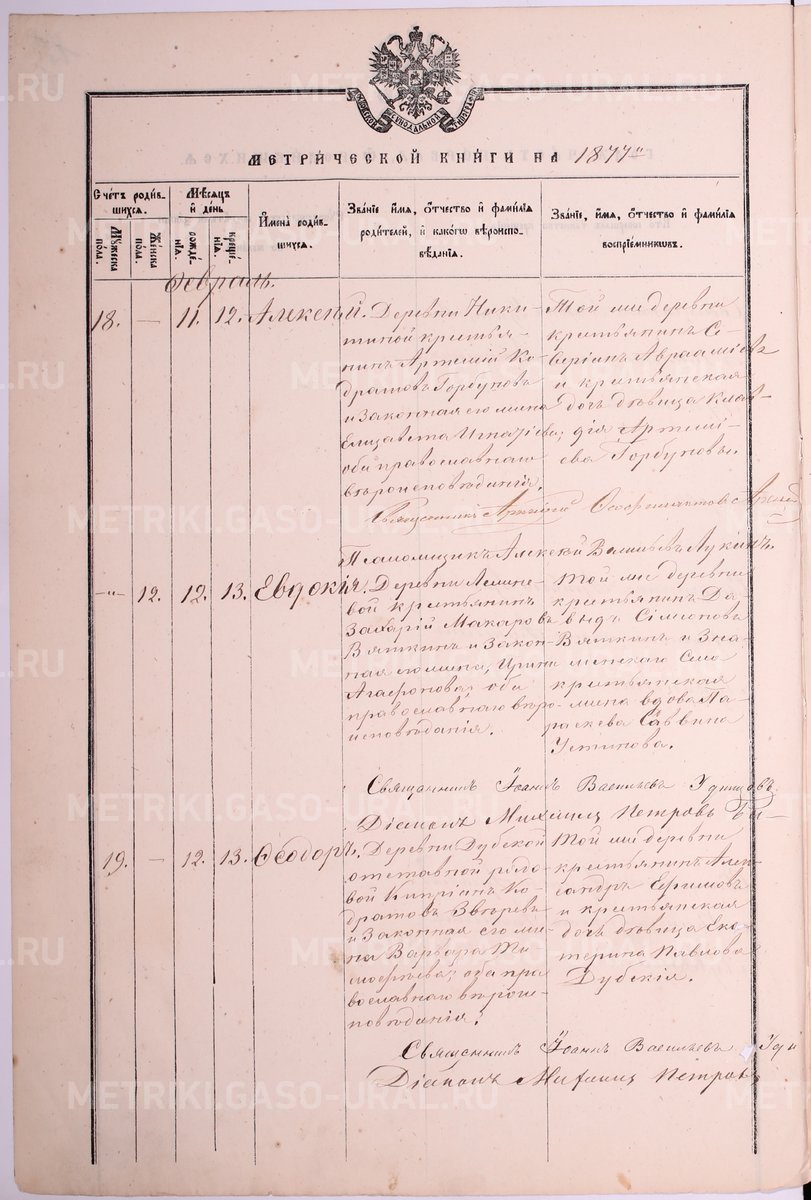 МЕТРИЧЕСКОЙ КНИГИ НА 1877
Счетъ родив-
шихся.
Мѣсяцъ
и день.
Имена родив-
шихся.
Званіе имя, отчество и фамилія
родителей, и какого вѣроиспо-
вѣданія.
Званіе, имя, отчество и фамилія
воспріемниковъ.
Мужеска
пола.
Женска
пола.
рожде-
нія.
креще-
нія.
Февраль.
18. — 11. 12. Алексей.
Деревни Ники-
тиной крестья-
нинъ Артемій Ко-
дратовъ Горбуновъ
и законная его жена
Елизавета Игнатіева;
оба православнаго
вѣроисповѣданія.
Той же деревни
крестьянинъ Се-
веріанъ Авраамовъ
и крестьянская
дочь дѣвица Клав-
дія Артемі-
ева Горбуновы.
Священникъ
Псаломщикъ Алексѣй Васильевъ Лукинъ.
-„- 12. 12. 13. Евдокія.
Деревни
крестьянинъ
Захарій Макаровъ
Вяткинъ и закон-
ная его жена, Ирина
Агафонова; оба
православнаго вѣро-
исповѣданія.
Той же деревни
крестьянинъ Да-
выдъ Симіоновъ
Вяткинъ и Зна-
менскаго Села
крестьянская
жена вдова Па-
раскева Саввина
Устинова.
Священникъ Іоаннъ Васильевъ Удинцовъ
Діаконъ Михаилъ Петровъ
19. — 12. 13. Ѳеодоръ.
Деревни Дубской
отставной рядо-
вой Кипріанъ Ко-
дратовъ Звѣревъ
и законная его же-
на Варвара Ти-
моѳеева; оба пра-
вославнаго вѣрои-
сповѣданія.
Той же деревни
крестьянинъ Алек-
сандръ Ефимовъ
и крестьянская
дочь дѣвица Ека-
терина Павлова
Дубскія.
Священникъ Іоаннъ Васильевъ Уди
Діаконъ Михаилъ Петровъ
METRIKI.GASO-URAL.RU